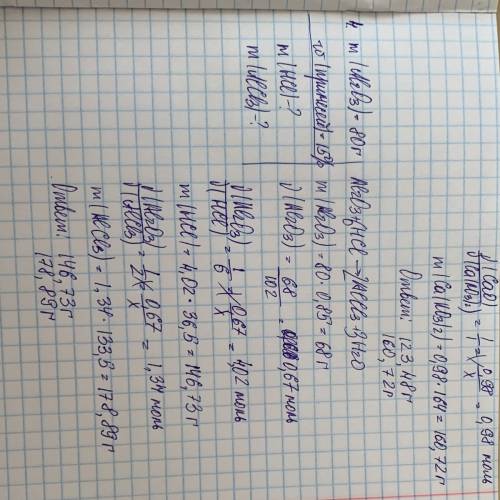 ν(CaO) / ν(Ca(NO₃)₂) = 1/1 = 0,98/x = 0,98 моль
m(Ca(NO₃)₂) = 0,98 · 164 = 160,72 г
Ответ: 123,48 г
160,72 г
4. m(Al₂O₃) = 80 г
ω(примесей) = 15%
m(HCl) - ?
m(AlCl₃) - ?
Al₂O₃ + 6HCl → 2AlCl₃ + 3H₂O
m(Al₂O₃) = 80 · 0,85 = 68 г
ν(Al₂O₃) = 68/102 = 0,67 моль
ν(Al₂O₃) / ν(HCl) = 1/6 = 0,67/x = 4,02 моль
m(HCl) = 4,02 · 36,5 = 146,73 г
ν(Al₂O₃) / ν(AlCl₃) = 1/2 = 0,67/x = 1,34 моль
m(AlCl₃) = 1,34 · 133,5 = 178,89 г
Ответ: 146,73 г
178,89 г